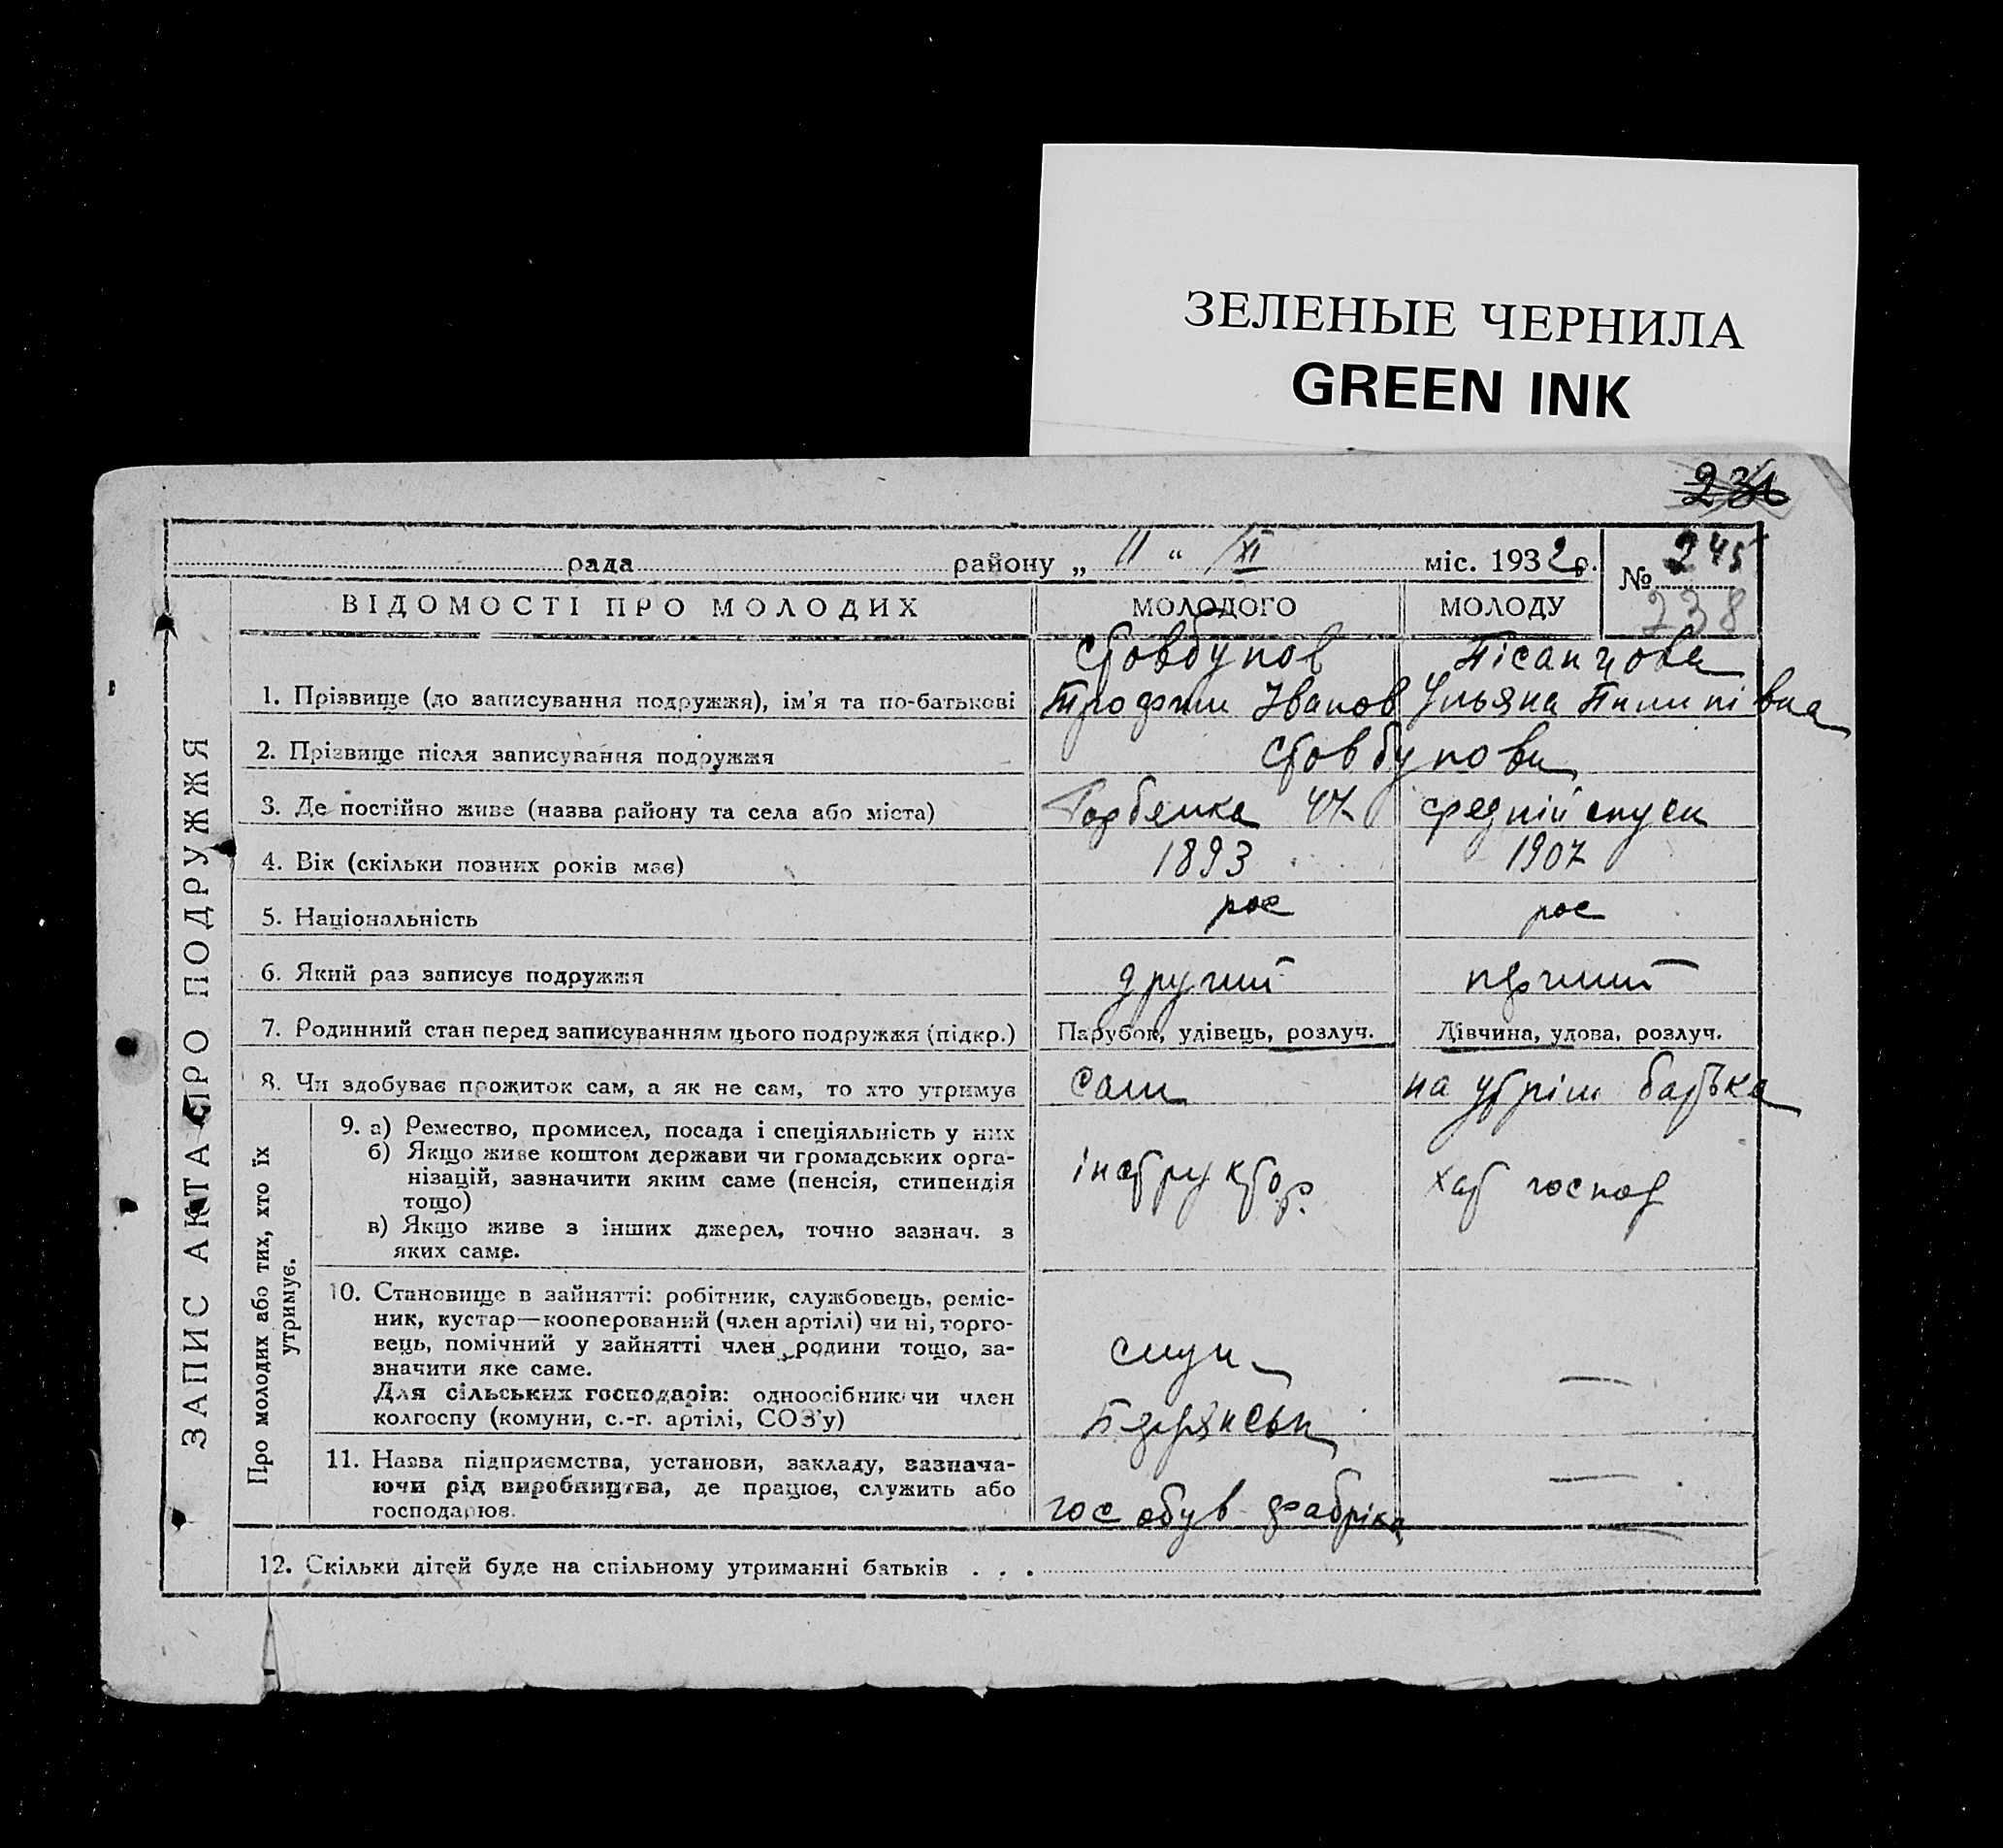 ЗЕЛЕНЫЕ ЧЕРНИЛА
GREEN INK
236
рада району „ 11 “ XI міс. 1932 р.
№ 245
238
ЗАПИС АКТА ПРО ПОДРУЖЖЯ
ВІДОМОСТІ ПРО МОЛОДИХ МОЛОДОГО МОЛОДУ
Стовбунов Пісанцова
1. Прізвище (до записування подружжя), ім'я та по-батькові Трофим Іванов Ульяна Пилипівна
2. Прізвище після записування подружжя Стовбунови
3. Де постійно живе (назва району та села або міста) Горбенка 47 средній спуск
4. Вік (скільки повних років має) 1893 1907
5. Національність рос рос
6. Який раз записує подружжя другий перший
7. Родинний стан перед записуванням цього подружжя (підкр.) Парубок, удівець, розлуч. Дівчина, удова, розлуч.
8. Чи здобуває прожиток сам, а як не сам, то хто утримує сам на утрім батька
Про молодих або тих, хто їх
утримує.
9. а) Ремество, промисел, посада і спеціяльність у них
б) Якщо живе коштом держави чи громадських орга-
нізацій, зазначити яким саме (пенсія, стипендія
тощо)
в) Якщо живе з інших джерел, точно зазнач. з
яких саме.
інструктор. хат господ
10. Становище в зайнятті: робітник, службовець, реміс-
ник, кустар—кооперований (член артілі) чи ні, торго-
вець, помічний у зайнятті член родини тощо, за-
значити яке саме.
Для сільських господарів: одноосібник чи член
колгоспу (комуни, с.-г. артілі, СОЗ'у)
служ —
11. Назва підприємства, установи, закладу, зазнача-
ючи рід виробництва, де працює, служить або
господарює.
Бердянськ —
гос обув фабріка
12. Скільки дітей буде на спільному утриманні батьків . . .